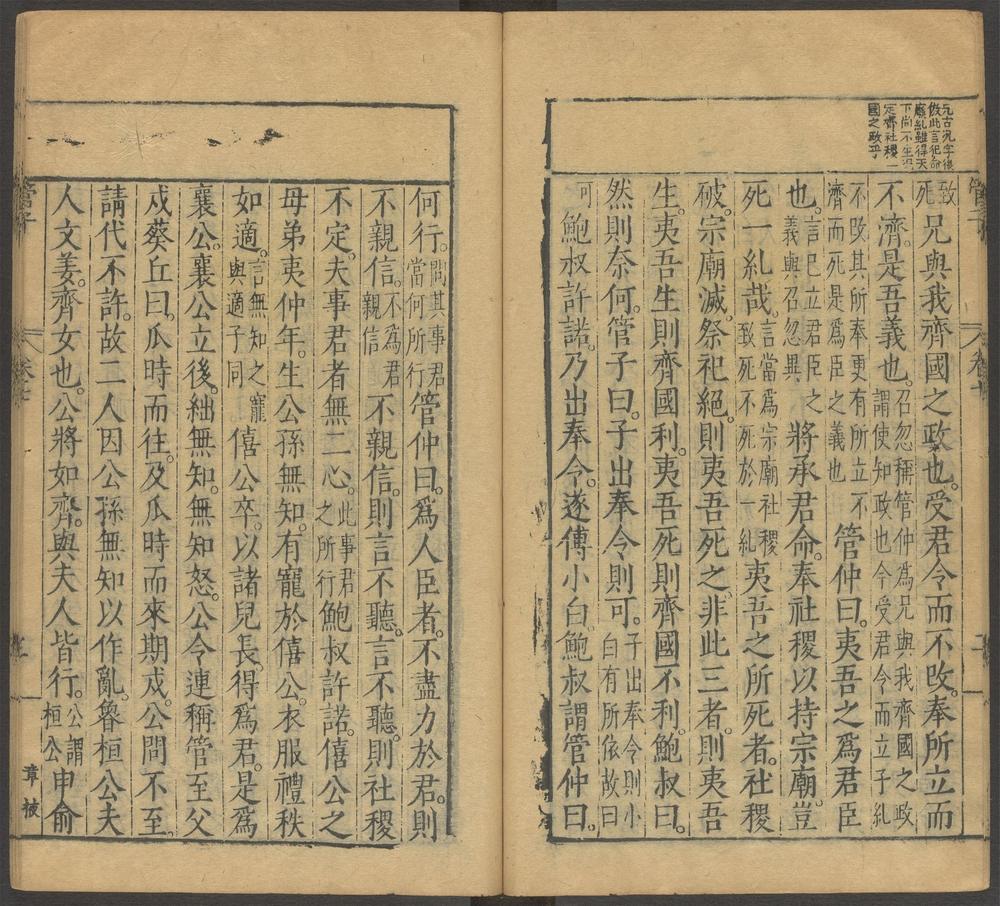 元古況字後
倣此言犯命
廢糺雖得天
下尚不生況
定齊社稷一
國之政乎
致死兄與我齊國之政也受君令而不改奉所立而
不濟是吾義也召忽稱管仲為兄與我齊國之政謂使知政也今受君令而立子糺
不改其所奉更有所立不濟而死是為臣之義也管仲曰夷吾之為君臣
也言已立君臣之義與召忽異將承君命奉社稷以持宗廟豈
死一糺哉言當為宗廟社稷致死不死於一糺夷吾之所死者社稷
破宗廟滅祭祀絕則夷吾死之非此三者則夷吾
生夷吾生則齊國利夷吾死則齊國不利鮑叔曰
然則奈何管子曰子出奉令則可子出奉令則小白有所依故曰
可鮑叔許諾乃出奉令遂傅小白鮑叔謂管仲曰
何行問其事君當何所行管仲曰為人臣者不盡力於君則
不親信不為君親信不親信則言不聽言不聽則社稷
不定夫事君者無二心此事君之所行鮑叔許諾僖公之
母弟夷仲年生公孫無知有寵於僖公衣服禮秩
如適言無知之寵與適子同僖公卒以諸兒長得為君是為
襄公襄公立後絀無知無知怒公令連稱管至父
戍葵丘曰瓜時而往及瓜時而來期戍公問不至
請代不許故二人因公孫無知以作亂魯桓公夫
人文姜齊女也公將如齊與夫人皆行公謂桓公申俞
管子
卷七
章校